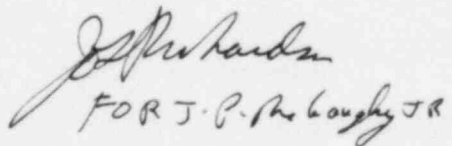 JS Richardson
FOR J. P. McGaughy JR